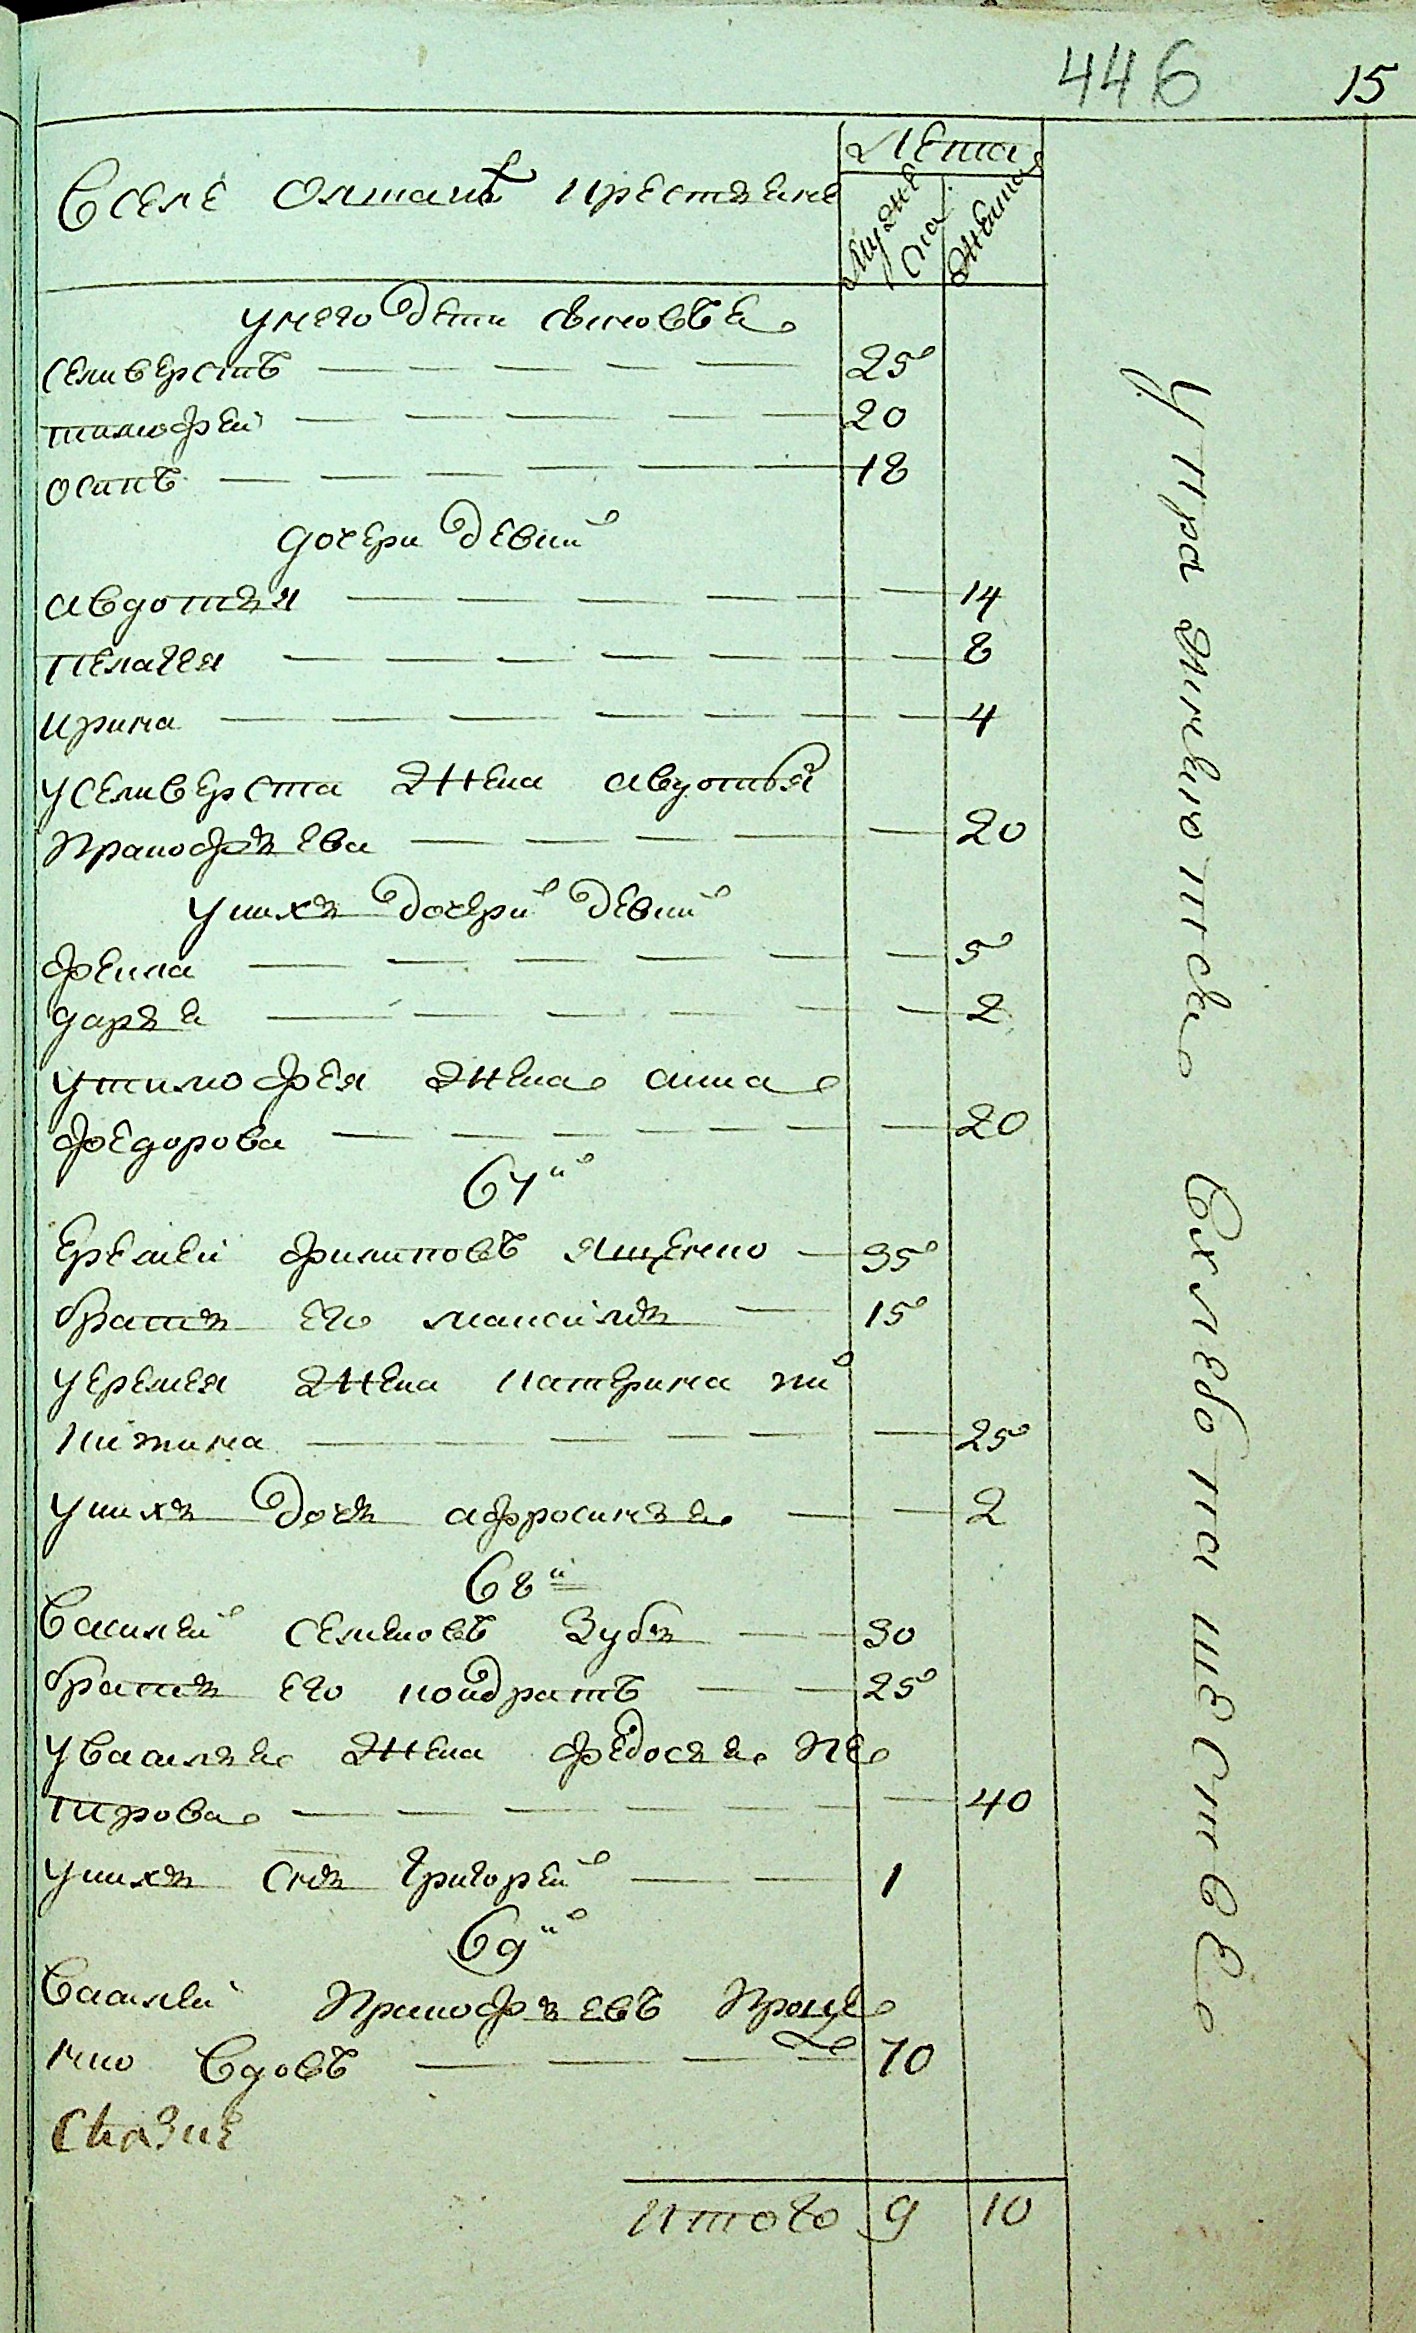 446 15
Лета
Вселе Олшане крестяне
Мужес ка
Женска
унего дети сыновъя
селиверстъ 25
тимофей 20
осипъ 18
дочери девки
авдотья 14
пелагея 8
ирина 4
уселиверста жена авдотья
Пракофьева 20
унихъ дочери девки
фекла 5
дарья 2
утимофея жена анна
федорова 20
67й
еремей филиповъ ященко 35
братъ его максимъ 15
уеремея жена катерина ни
китина 25
унихъ дочь афросинья 2
68й
Василей семеновъ Зубъ 30
братъ его кондратъ 25
уВасилья жена федосья Пе
трова 40
унихъ снъ григорей 1
69й
Василей Пракофьевъ Проце
нко Вдовъ 70
итого 9 10